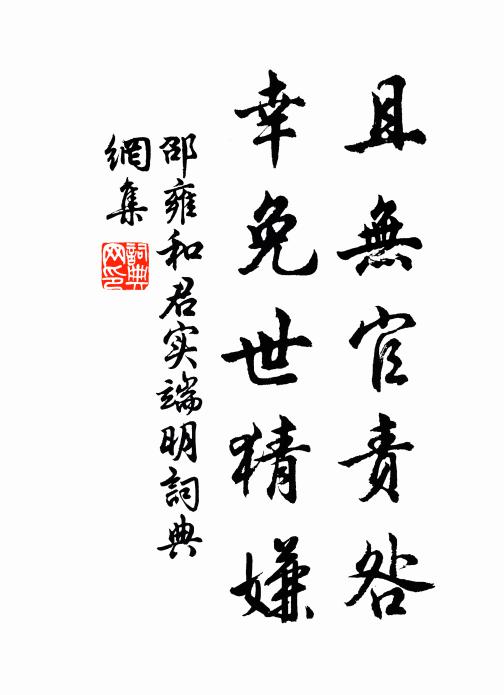 且無官責咎
幸免世猜嫌
邵雍和君实端明詞典
網集
詞典網印